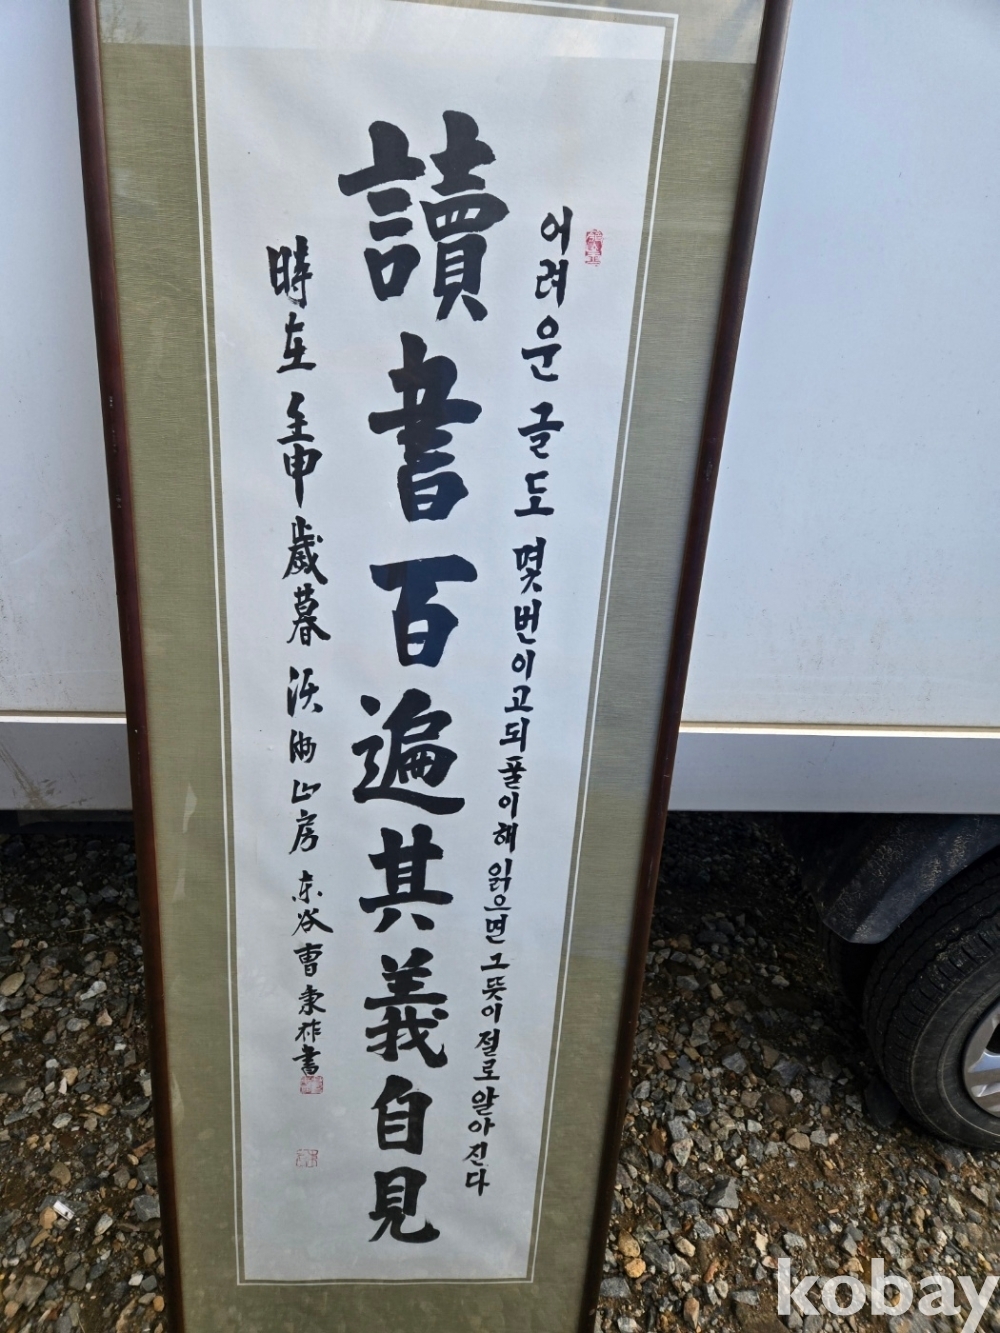 어려운 글도 몇번이고 되풀이해 읽으면 그 뜻이 절로 알아진다
讀書百遍其義自見
時在壬申歲暮 渼沙山房 東谷 曺秉祚書
kobay